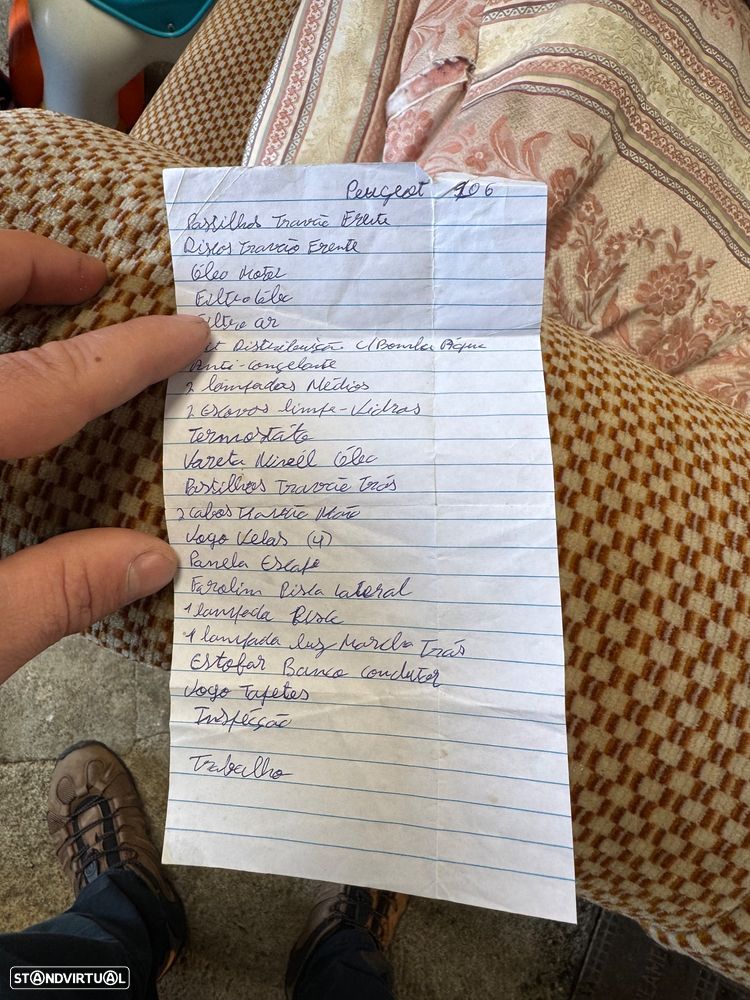 Peugeot 106
Passilhos Travão Frente
Discos Travão Frente
Óleo Motor
Filtro Óleo
Filtro ar
Kit Distribuição c/Bomba Água
Anti-congelante
2 lampadas Médios
2 Escovas limpa-Vidros
Termostáto
Vareta Nivél Óleo
Passilhos Travão Trás
2 cabos Travão Mão
Jogo Velas (4)
Panela Escape
Farolim Pisca Lateral
1 lampada Pisc
1 lampada luz Marcha Trás
Estofar Banco condutor
Jogo Tapetes
Inspecção
Trabalho
STANDVIRTUAL